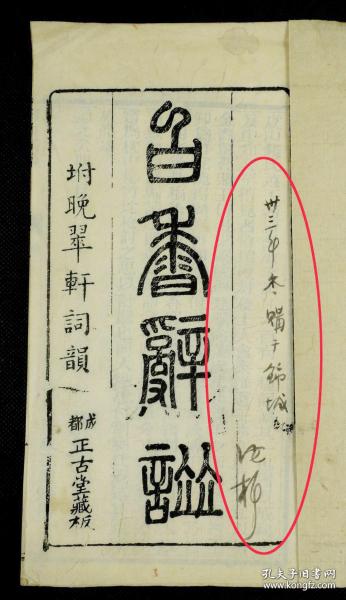 卅三年冬購于錦城
白香辭譜
坿晚翠軒詞韻
成都
正古堂藏板
孔夫子旧书网
www.kongfz.com